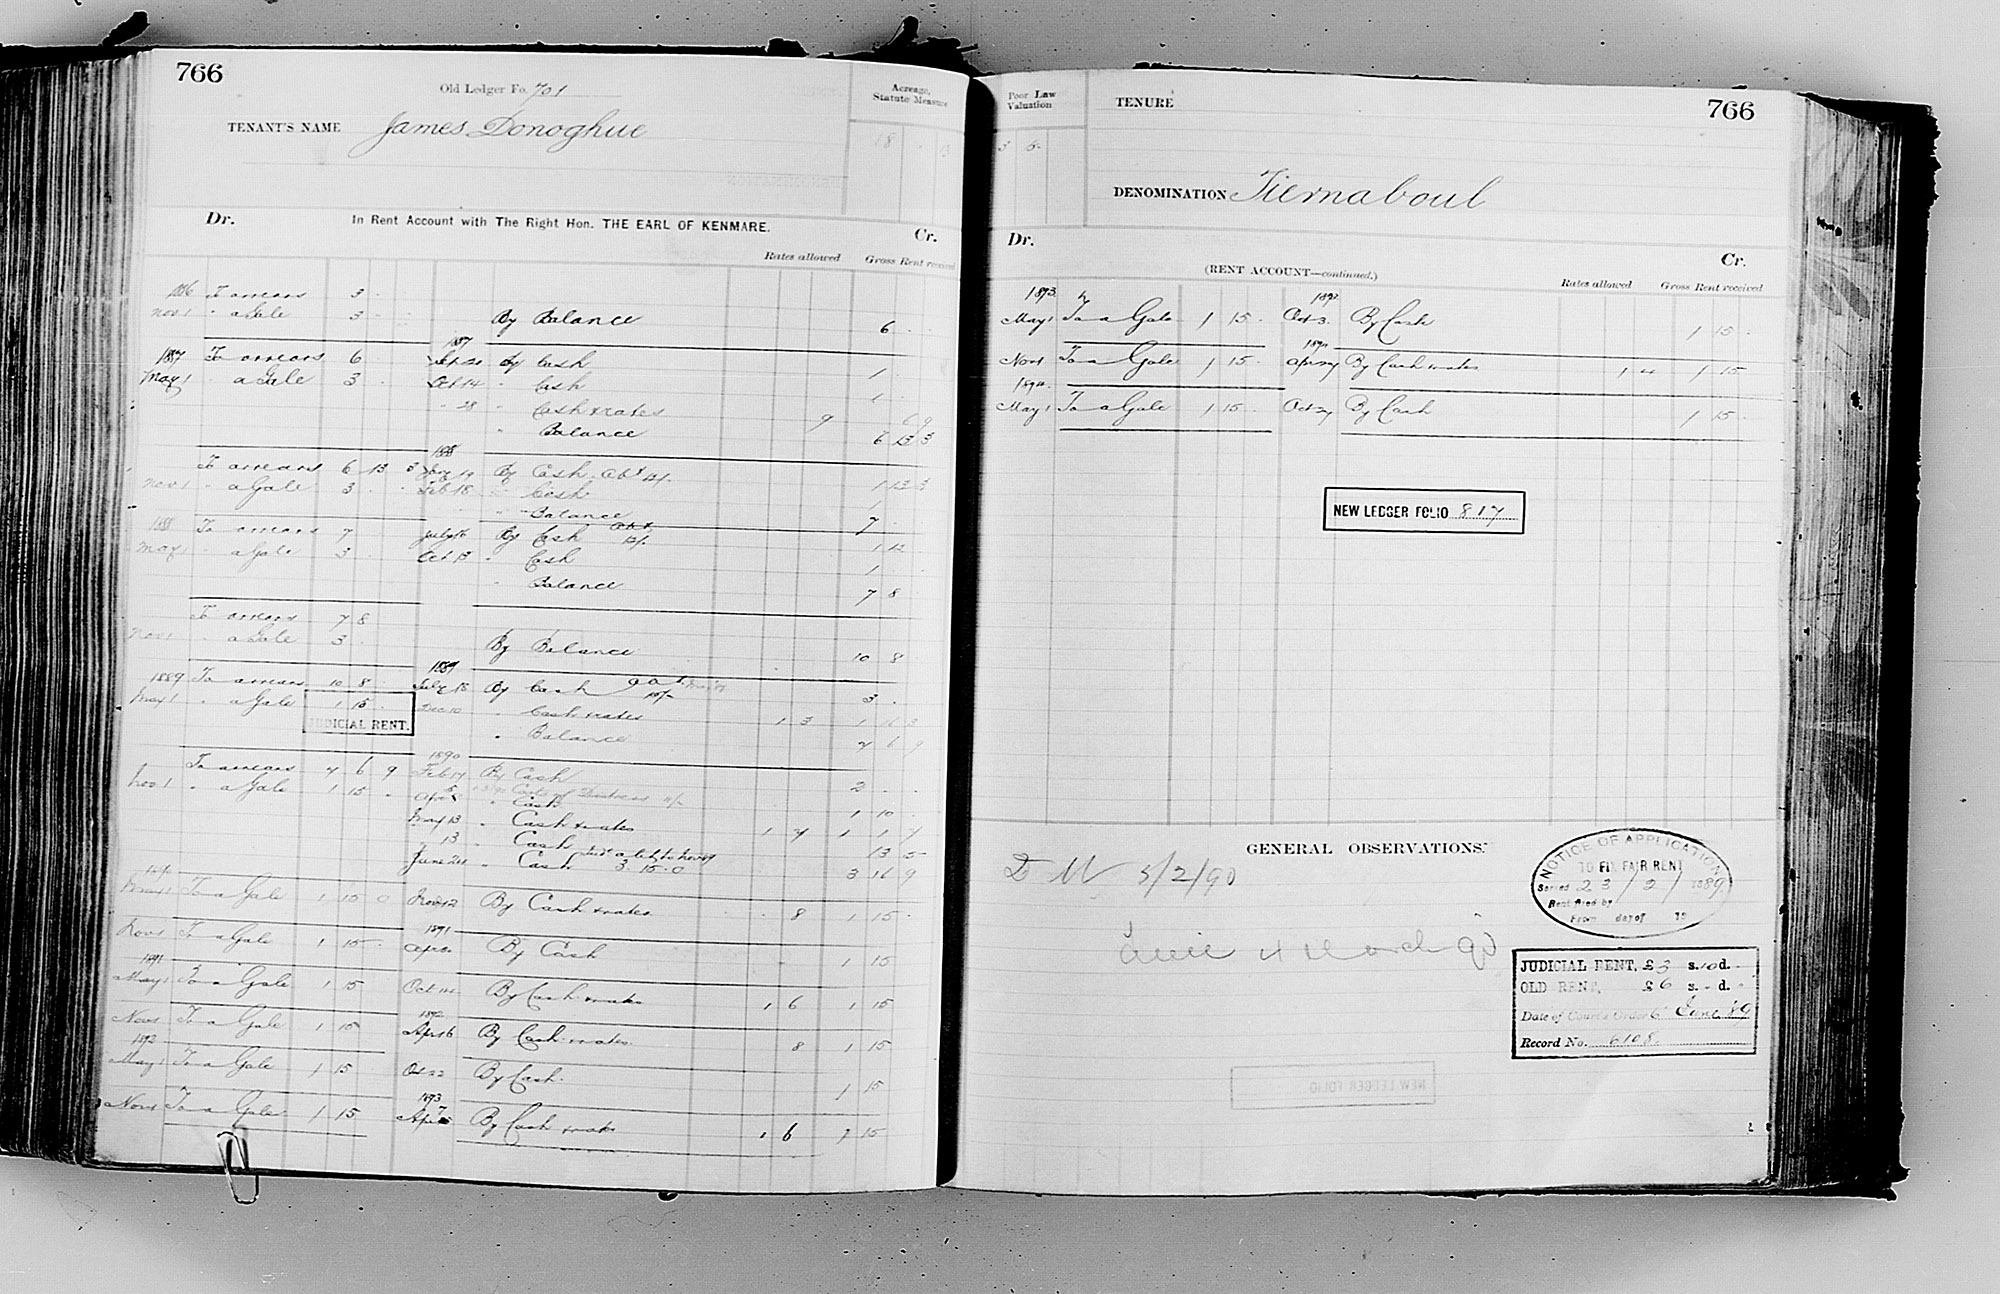 766
Old Ledger Fo. 701
Acreage, Statute Measure
TENANT'S NAME James Donoghue
18 . 3
Dr. In Rent Account with The Right Hon. THE EARL OF KENMARE. Cr.
Rates allowed Gross Rent received
1886 To arrears 3 .
Nov 1 " a Gale 3 . . By Balance 6 .
1887 To arrears 6 1887 Sept 20 By Cash 1 .
May 1 " a Gale 3 . Oct 14 " Cash 1
" 28 " Cash & rates 9 6 9
" Balance 6 13 3
1888
To arrears 6 13 3 Jany 19 By Cash abt 4/.
1 13 3
Nov 1 " a Gale 3 . . Feb 18 " Cash 1
" Balance 7
1888 To arrears 7 July 18 By Cash abt 12/. 1 12
May 1 " a Gale 3 Oct 13 " Cash 1
" Balance 7 8
To arrears 7 8
Nov 1 " a Gale 3 . By Balance 10 8
1889 To arrears 10 8 1889 July 18 By Cash 3 .
May 1 " a Gale 1 15 . Dec 10 " Cash & rates 1 3 1 16 3
JUDICIAL RENT.
" Balance
1890
To arrears 6 9 Feb 14 By Cash 2 . .
Nov 1 " a Gale 1 15 " Costs of
" Cash 1 10
May 13 " Cash & rates 1 7 1 1 7
" 13 " Cash 13 5
June 24 " Cash 3.15.0 3 16 9
May 1 To a Gale 1 15 0 Nov 12 By Cash & rates 8 1 15
Nov 1 To a Gale 1 15 1891 By Cash 1 15
1891
May 1 To a Gale 1 15 Oct 14 By Cash & rates 1 6 1 15
Nov 1 To a Gale 1 15 1892 Apr 16 By Cash & rates 8 1 15
1892
May 1 To a Gale 1 15 Oct 22 By Cash 1 15
Nov 1 To a Gale 1 15 1893 By Cash & rates 1 6 1 15
Poor Law Valuation
TENURE
766
3 5
DENOMINATION Tiernaboul
Dr. Cr.
(RENT ACCOUNT—continued.)
Rates allowed Gross Rent received
1893
May 1 To a Gale 1 15 Oct 3 By Cash 1 15
Nov 1 To a Gale 1 15 By Cash & rates 1 4 1 15
1894
May 1 To a Gale 1 15 Oct 24 By Cash 1 15
NEW LEDGER FOLIO 817
GENERAL OBSERVATIONS.
5/2/90
NOTICE OF APPLICATION
TO FIX FAIR RENT
Series 23/2/1889
Rent fixed by
From day of 18
JUDICIAL RENT, £3 s. 10 d. -
OLD RENT, £6 s. - d. -
Date of Court's Order 6 June '89
Record No. 6108
NEW LEDGER FOLIO